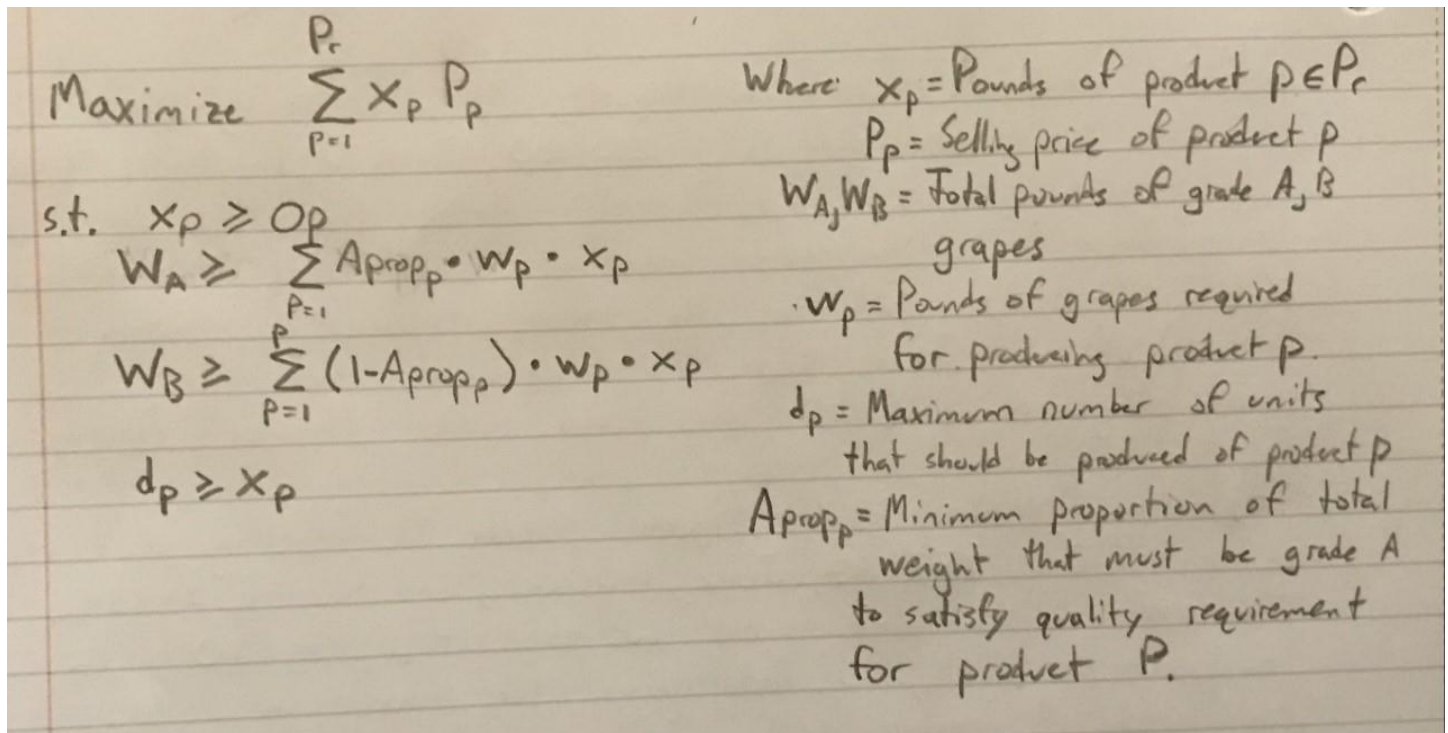 Maximize \sum_{p=1}^{P_r} x_p P_p
s.t. x_p ≥ 0_p
W_A ≥ \sum_{p=1} Aprop_p • w_p • x_p
W_B ≥ \sum_{p=1}^{p} (1-Aprop_p) • w_p • x_p
d_p ≥ x_p
Where: x_p = Pounds of product p ∈ P_r
P_p = Selling price of product p
W_A, W_B = Total pounds of grade A, B
grapes
w_p = Pounds of grapes required
for producing product p.
d_p = Maximum number of units
that should be produced of product p
Aprop_p = Minimum proportion of total
weight that must be grade A
to satisfy quality requirement
for product P.